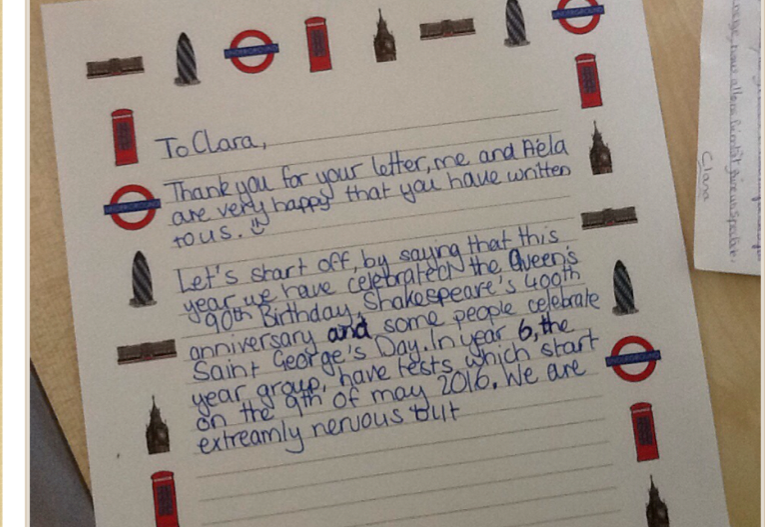 To Clara,
Thank you for your letter, me and Aéla
are very happy that you have written
to us.
Let's start off, by saying that this
year we have celebrated the Queen's
90th Birthday, Shakespeare's 400th
anniversary and some people celebrate
Saint George's Day. In year 6, the
year group, have tests which start
on the 9th of may 2016. We are
extreamly nervous but
UNDERGROUND
UNDERGROUND
UNDERGROUND
UNDERGROUND
Clara